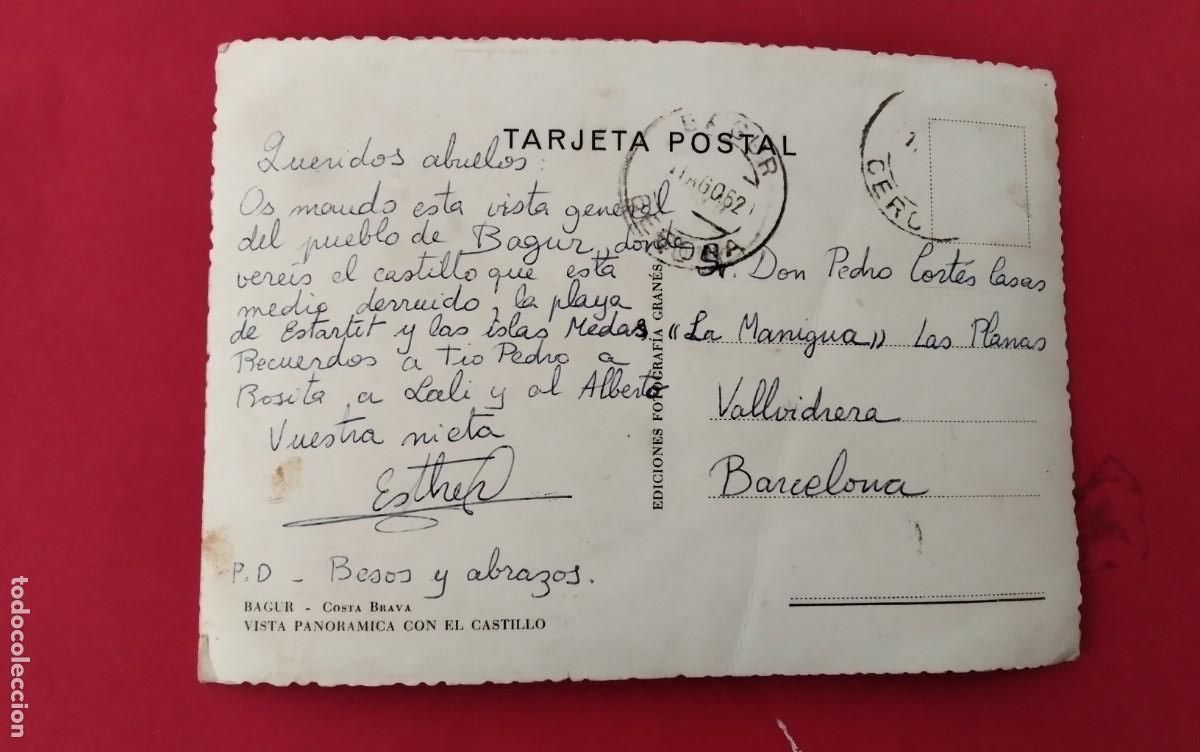 TARJETA POSTAL
Queridos abuelos:
Os mando esta vista general
del pueblo de Bagur, donde
vereis el castillo que está
medio derruido, la playa
de Estartit y las islas Medas
Recuerdos a Tio Pedro a
Rosita, a Lali y al Alberto
Vuestra nieta
Esther
P.D - Besos y abrazos.
BAGUR - COSTA BRAVA
VISTA PANORAMICA CON EL CASTILLO
EDICIONES FOTOGRAFÍA GRANÉS
BAGUR
11 AGO 62
GERONA
Sr. Don Pedro Cortés Casas
"La Manigua" Las Planas
Vallvidrera
Barcelona
todocoleccion